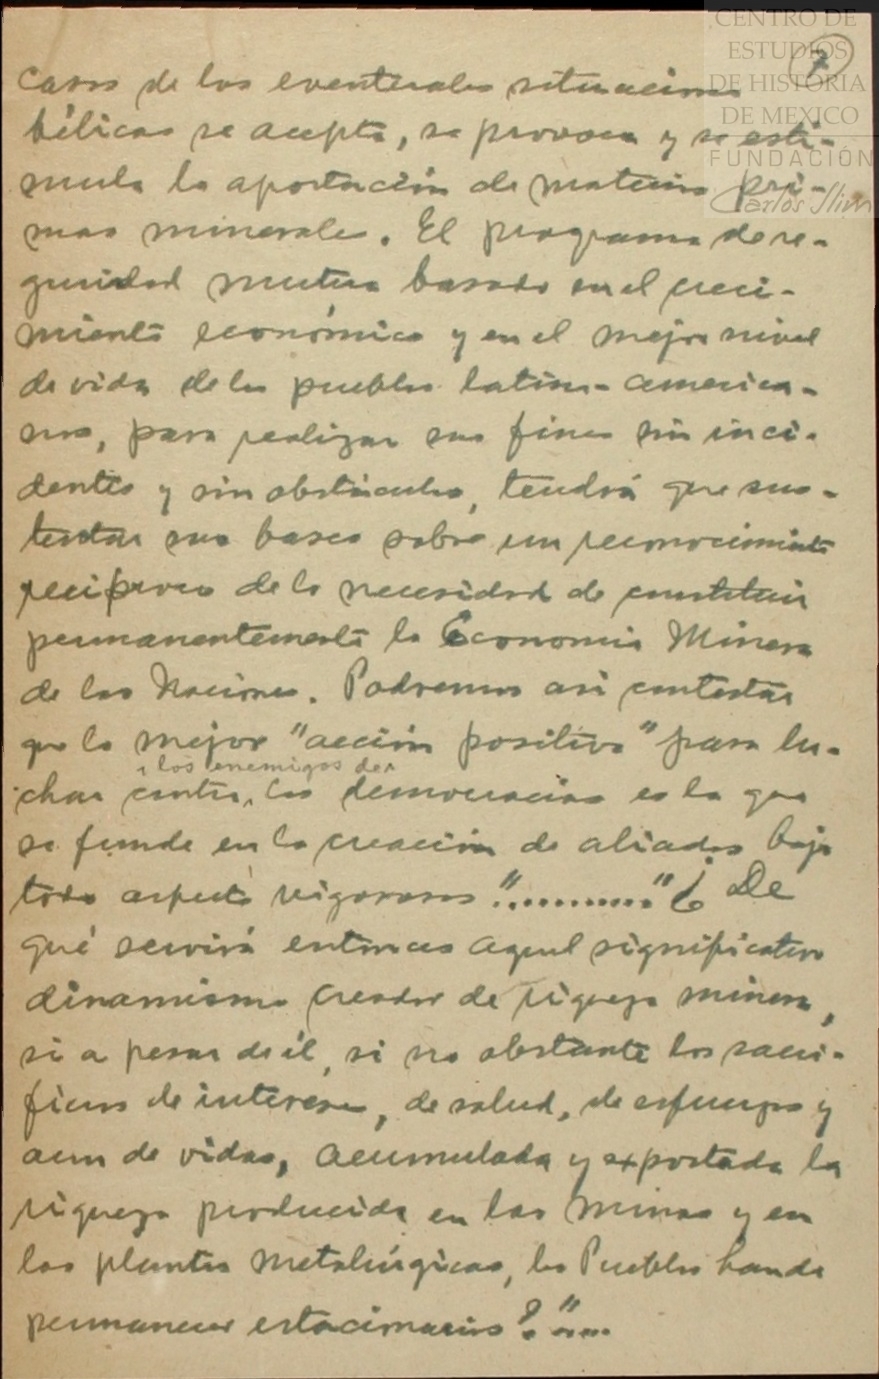 CENTRO DE
ESTUDIOS
DE HISTORIA
DE MEXICO
FUNDACIÓN
Carlos Slim
7
casos de las eventuales situaciones
bélicas se acepta, se provoca y se esti-
mula la aportación de materias pri-
mas minerales. El programa de se-
guridad mutua basado en el creci-
miento económico y en el mejor nivel
de vida de los pueblos latino-america-
nos, para realizar sus fines sin inci-
dentes y sin obstáculos, tendrá que sus-
tentar sus bases sobre un reconocimiento
recíproco de la necesidad de constituir
permanentemente la Economia Minera
de las Naciones. Podremos asi contestar
que la mejor "acción positiva" para lu-
los enemigos de
char contra las democracias es la que
se funde en la creación de aliados bajo
todo aspecto vigorosos "..........." ¿De
qué servirá entonces aquel significativo
dinamismo creador de riqueza minera,
si a pesar de él, si no obstante los sacri-
ficios de intereses, de salud, de esfuerzo y
aun de vidas, acumulada y exportada la
riqueza producida en las minas y en
las plantas metalúrgicas, los Pueblos han de
permanecer estacionarios?"....